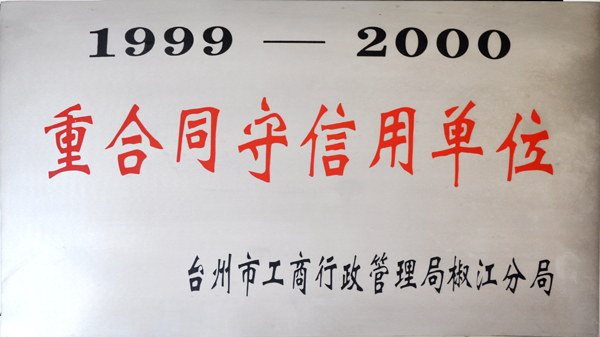 1999 — 2000
重合同守信用单位
台州市工商行政管理局椒江分局